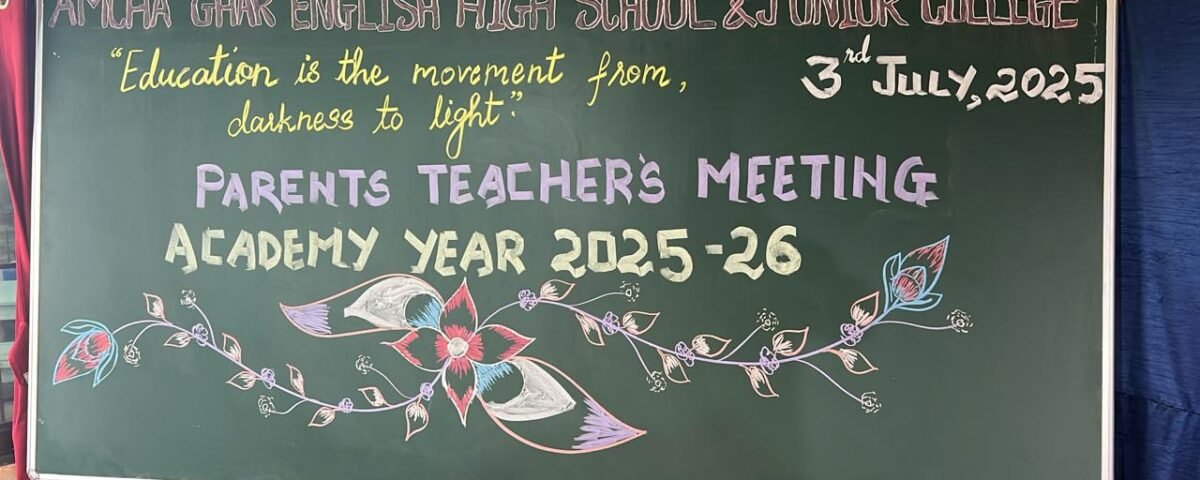 AMCHA GHAR ENGLISH HIGH SCHOOL & JUNIOR COLLEGE
3rd JULY, 2025
"Education is the movement from,
darkness to light"
PARENTS TEACHER'S MEETING
ACADEMY YEAR 2025-26